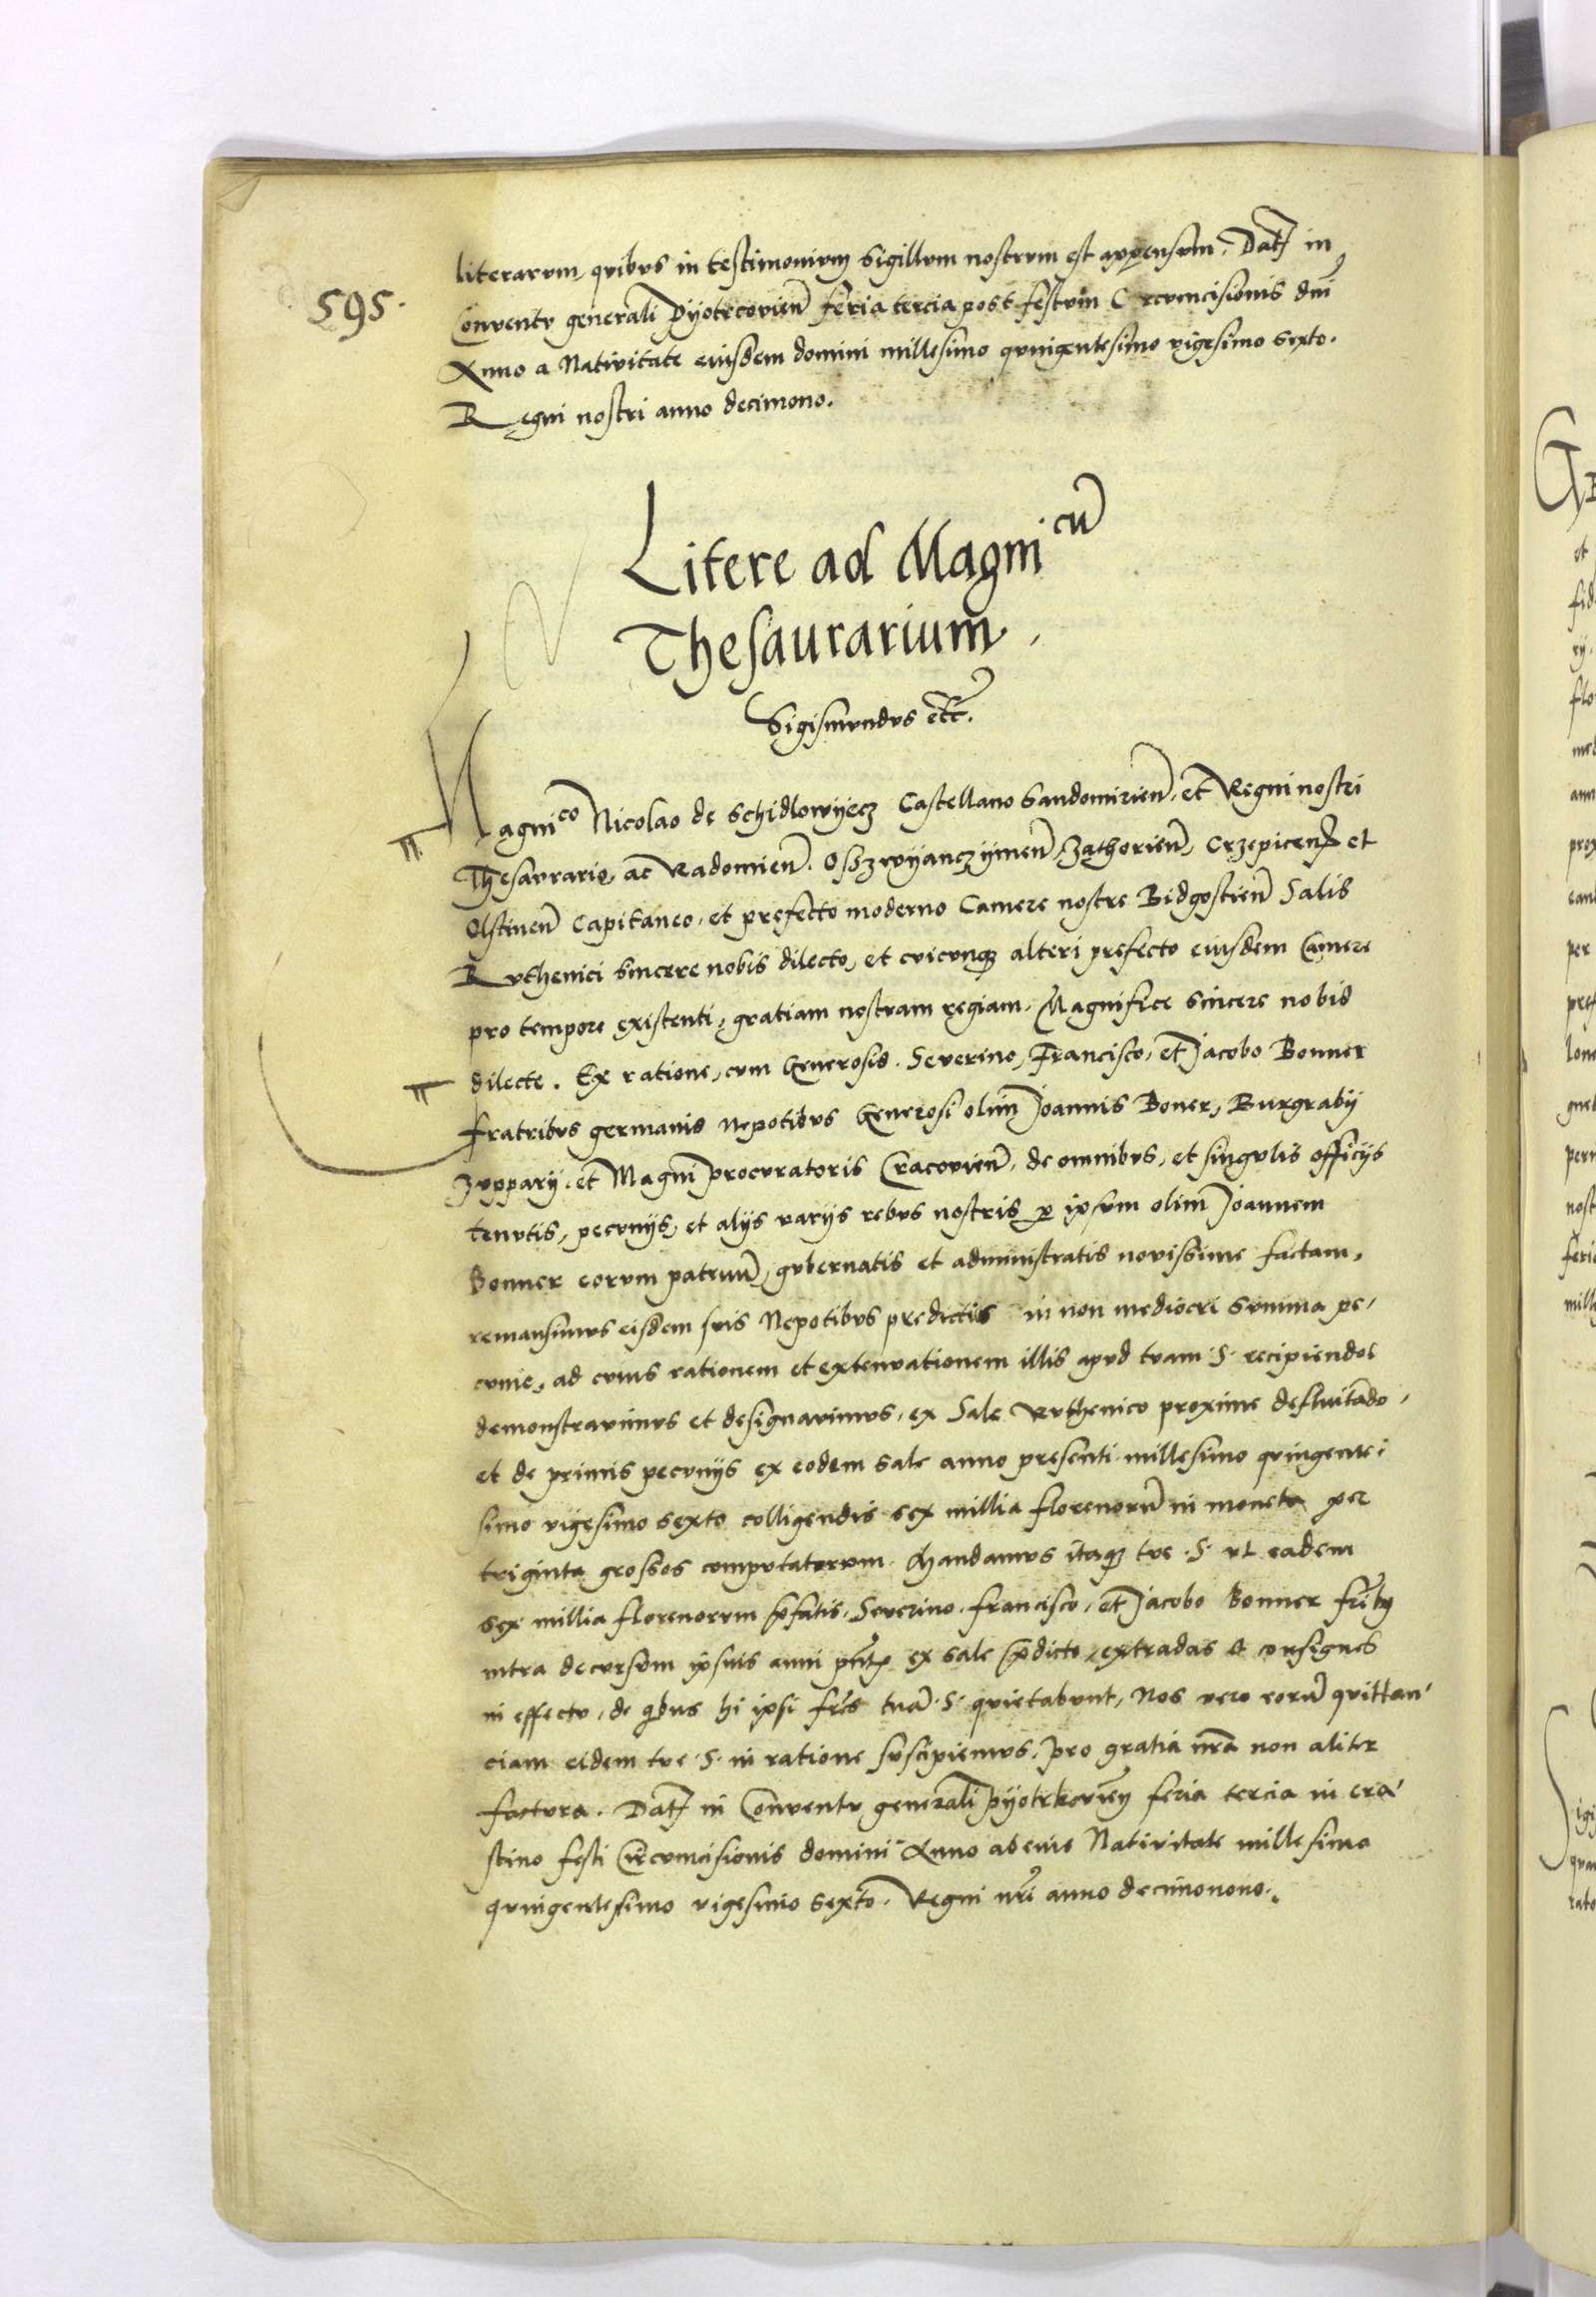 literarum, quibus in testimonium sigillum nostrum est appensum. Dat in
595.
Conventu generali Pyotrcovien feria tercia post festum Circumcisionis dni
Anno a Nativitate eiusdem domini millesimo quingentesimo vigesimo sexto.
Regni nostri anno decimono.
Litere ad Magnicu
Thesaurarium.
Sigismundus etc.
Magnico Nicolao de Schidlowyecz Castellano Sandomirien, et Regni nostri
Thesaurario, ac Radomien. Osszwyanczymen, Zathorien, Crzepicen et
Olstinen Capitaneo, et prefecto moderno Camere nostre Bidgostien Salis
Ruthenici sincere nobis dilecto, et cuicunq alteri prefecto eiusdem Camere
pro tempore existenti, gratiam nostram regiam. Magnifice sincere nobis
dilecte. Ex ratione, cum Generosis. Severino, Francisco, et Jacobo Bonner
fratribus germanis nepotibus Generosi olim Joannis Boner, Burgrabij
Zuppary. et Magni procuratoris Cracovien, de omnibus, et singulis officijs
tenutis, pecunijs, et alijs varijs rebus nostris p ipsum olim Joannem
Bonner eorum patruu, gubernatis et administratis novissime factam,
remansimus eisdem suis Nepotibus predictis in non mediocri summa pe-
cunie, ad cuius rationem et extenuationem illis apud tuam .S. recipiendos
demonstravimus et designavimus, ex Sale Ruthenico proxime defluitado,
et de primis pecunijs ex eodem sale anno presenti millesimo quingente-
simo vigesimo sexto colligendis sex millia florenoru in moneta per
triginta grossos computatorum. Mandamus itaq tue .S. ut eadem
sex millia florenorum pfatis, Severino. francisco, et Jacobo Bonner frib
intra decursum ipsius anni pntis ex sale pdicto, extradas et consignes
in effectu, de qbus hi ipsi frēs tuā .S. quietabunt, Nos vero eoru quittan-
ciam eidem tue .S. in ratione suscipiemus, pro gratia nra non aliter
factura. Dat in Conventu generali pyotrkovien feria tercia in cra-
stino festi Circumcisionis domini Anno ab eius Nativitate millesimo
quingentesimo vigesimo sexto. Regni nri anno decimonono.